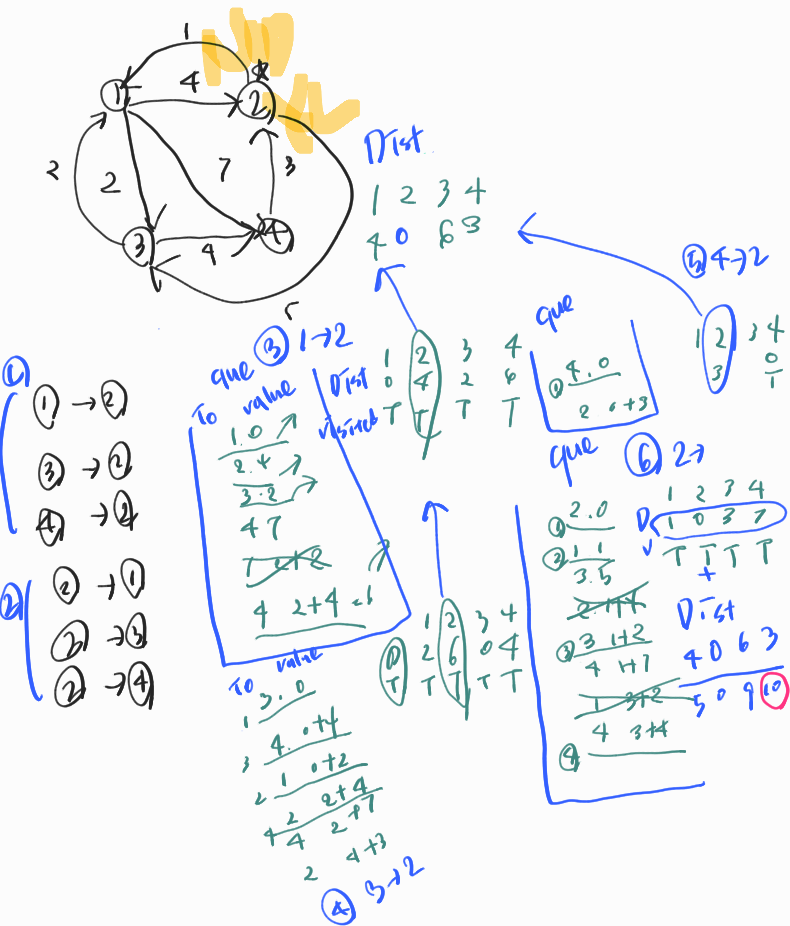 1
4
1
2
2
2
7
3
3
4
4
5
Dist
1 2 3 4
4 0 6 3
⑤ 4→2
1 2 3 4
3 0
T
① 
① → ②
③ → ②
④ → ②
②
② → ①
② → ③
② → ④
③ 1→2
que
To value
1.0
2.4
3.2
4 7
1 2+2
4 2+4=6
1 2 3 4
Dist 0 4 2 6
visited T T T T
que
① 4.0
2 0+3
1 2 3 4
D 2 6 0 4
T T T T T
To value
1 3.0
3 4. 0+4
2 1 0+2
2 2+4
4 4 2+7
2 4+3
④ 3→2
que
⑥ 2→
① 2.0
② 1 1
3.5
③ 3 1+2
4 1+7
1 3+2
4 3+4
④
1 2 3 4
D 1 0 3 7
V T T T T
+
Dist
4 0 6 3
5 0 9 10